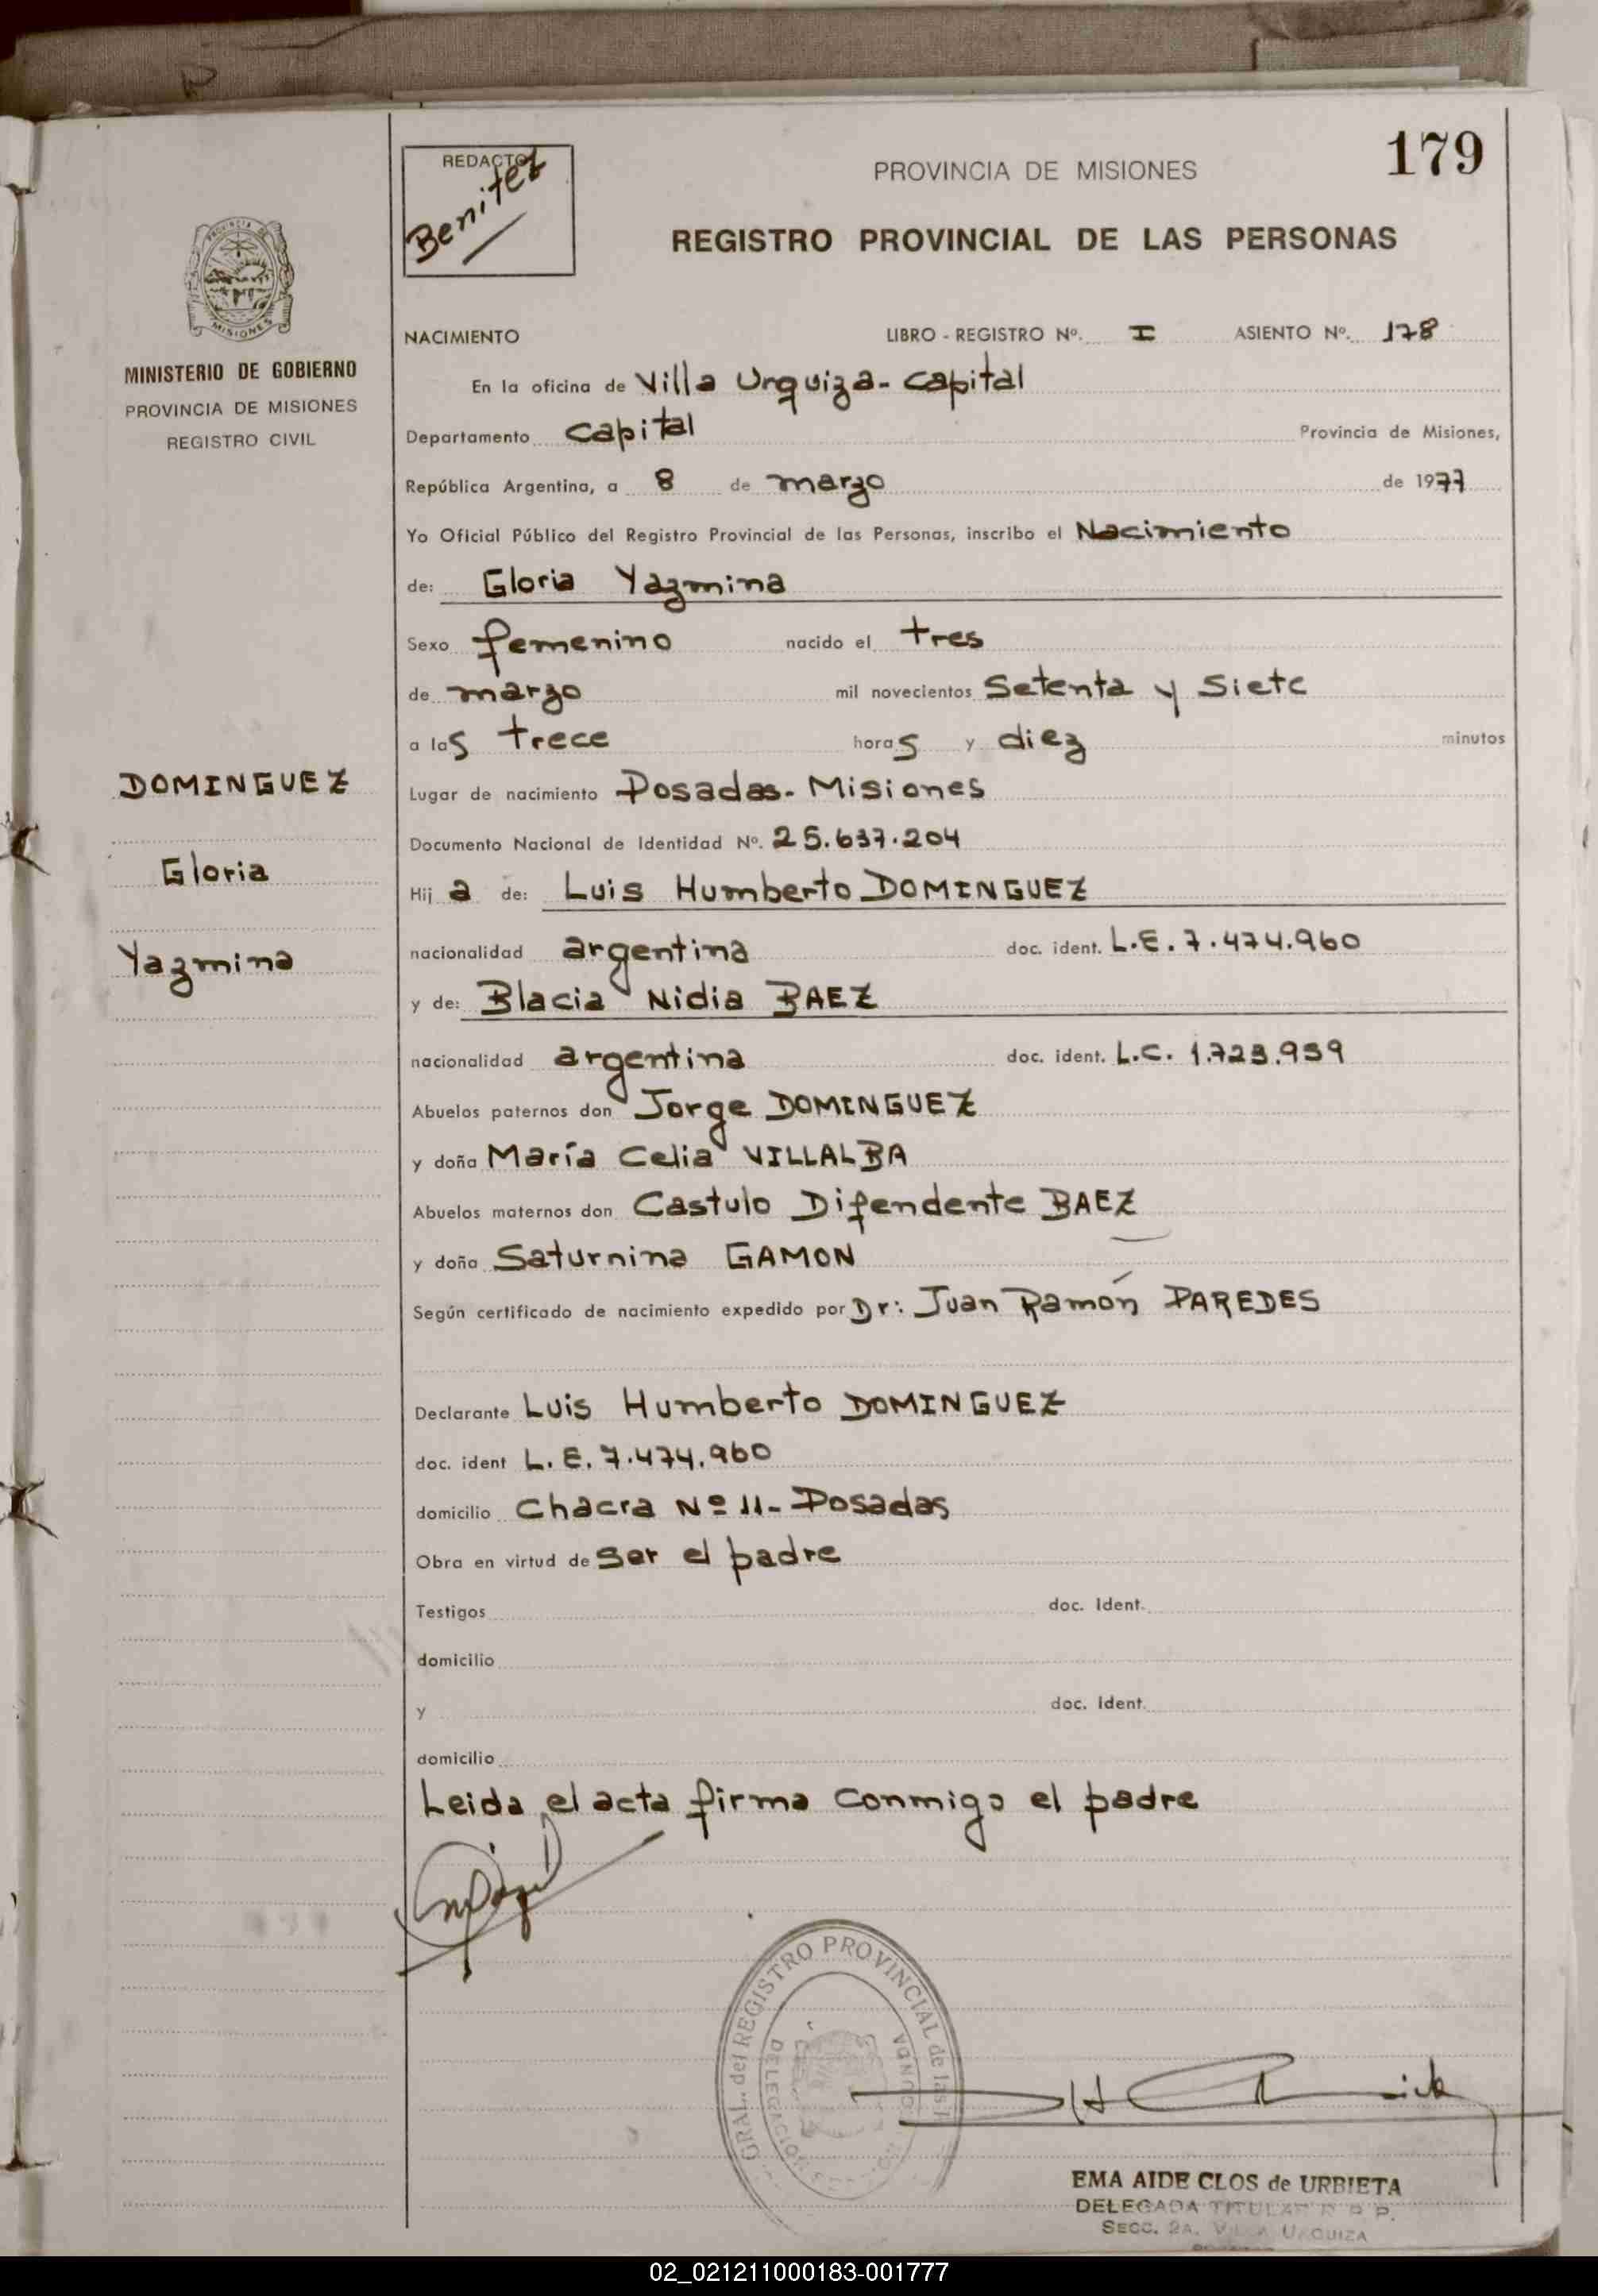 REDACTOR
Benitez
179
PROVINCIA DE MISIONES
REGISTRO PROVINCIAL DE LAS PERSONAS
PROVINCIA DE
MISIONES
MINISTERIO DE GOBIERNO
PROVINCIA DE MISIONES
REGISTRO CIVIL
DOMINGUEZ
Gloria
Yazmina
NACIMIENTO LIBRO - REGISTRO Nº. I ASIENTO Nº. 178
En la oficina de Villa Urquiza - Capital
Departamento Capital Provincia de Misiones,
República Argentina, a 8 de marzo de 1977
Yo Oficial Público del Registro Provincial de las Personas, inscribo el Nacimiento
de: Gloria Yazmina
Sexo femenino nacido el tres
de marzo mil novecientos Setenta y Siete
a las trece horas y diez minutos
Lugar de nacimiento Posadas - Misiones
Documento Nacional de Identidad Nº. 25.637.204
Hij a de: Luis Humberto DOMINGUEZ
nacionalidad argentina doc. ident. L.E. 7.474.960
y de: Blacia Nidia BAEZ
nacionalidad argentina doc. ident. L.C. 1.723.959
Abuelos paternos don Jorge DOMINGUEZ
y doña María Celia VILLALBA
Abuelos maternos don Castulo Difendente BAEZ
y doña Saturnina GAMON
Según certificado de nacimiento expedido por Dr: Juan Ramón PAREDES
Declarante Luis Humberto DOMINGUEZ
doc. ident L. E. 7.474.960
domicilio Chacra Nº 11 - Posadas
Obra en virtud de Ser el padre
Testigos doc. Ident.
domicilio
y doc. Ident.
domicilio
Leida el acta firma conmigo el padre
GRAL. del REGISTRO PROVINCIAL de las
DELEGACION
EMA AIDE CLOS de URBIETA
DELEGADA TITULAR R. P. P.
SECC. 2A. VILLA URQUIZA
02_021211000183-001777